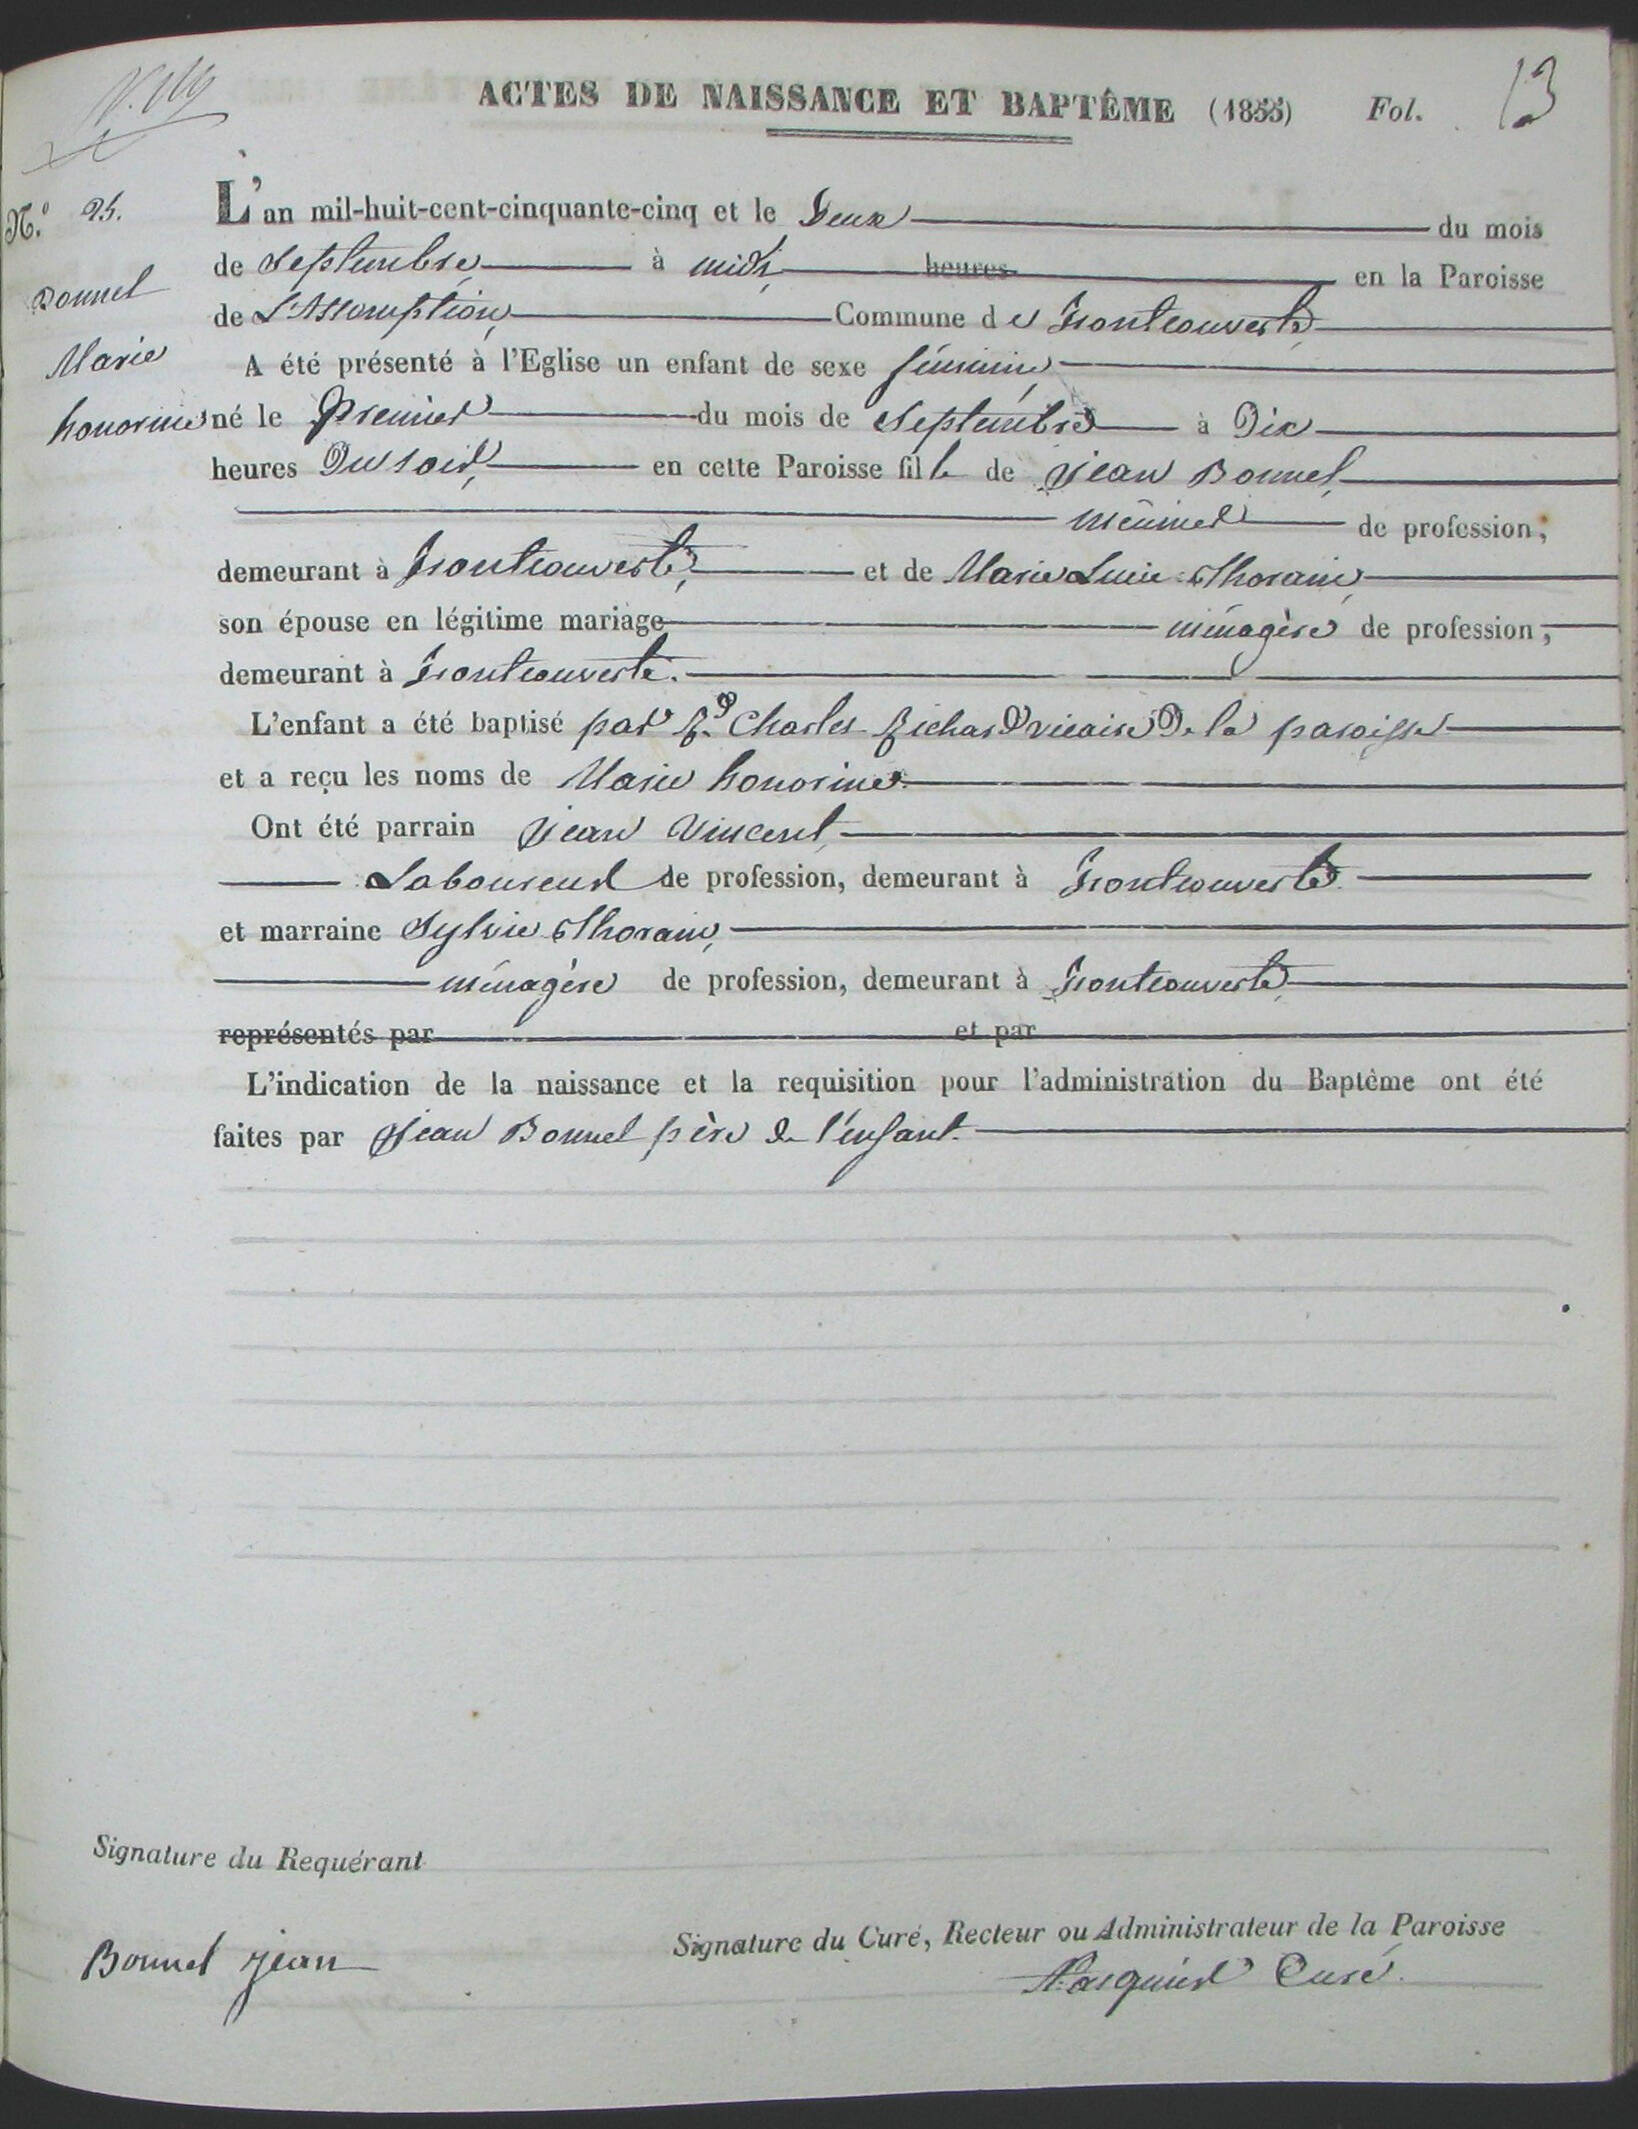 ACTES DE NAISSANCE ET BAPTÊME (1855) Fol. 13
N.º 25.
L'an mil-huit-cent-cinquante-cinq et le Deux du mois
de Septembre à midi, heures en la Paroisse
Bonnel
de L'Assomption, Commune de Frontcouverte,
Marie
A été présenté à l'Eglise un enfant de sexe féminin,
honorine
né le Premier du mois de Septembre à Dix
heures Du soir, en cette Paroisse fille de Jean Bonnel,
meûnier de profession;
demeurant à Frontcouverte, et de Marie Lucie Thorain,
son épouse en légitime mariage ménagère de profession;
demeurant à Frontcouverte.
L'enfant a été baptisé par Rd. Charles Richard vicaire De la paroisse
et a reçu les noms de Marie honorine.
Ont été parrain Jean Vincent,
Laboureur de profession, demeurant à Frontcouverte.
et marraine Sylvie Thorain,
ménagère de profession, demeurant à Frontcouverte,
représentés par et par
L'indication de la naissance et la requisition pour l'administration du Baptême ont été
faites par Jean Bonnel père de l'enfant.
Signature du Requérant
Signature du Curé, Recteur ou Administrateur de la Paroisse
Bonnel jean
Curé.